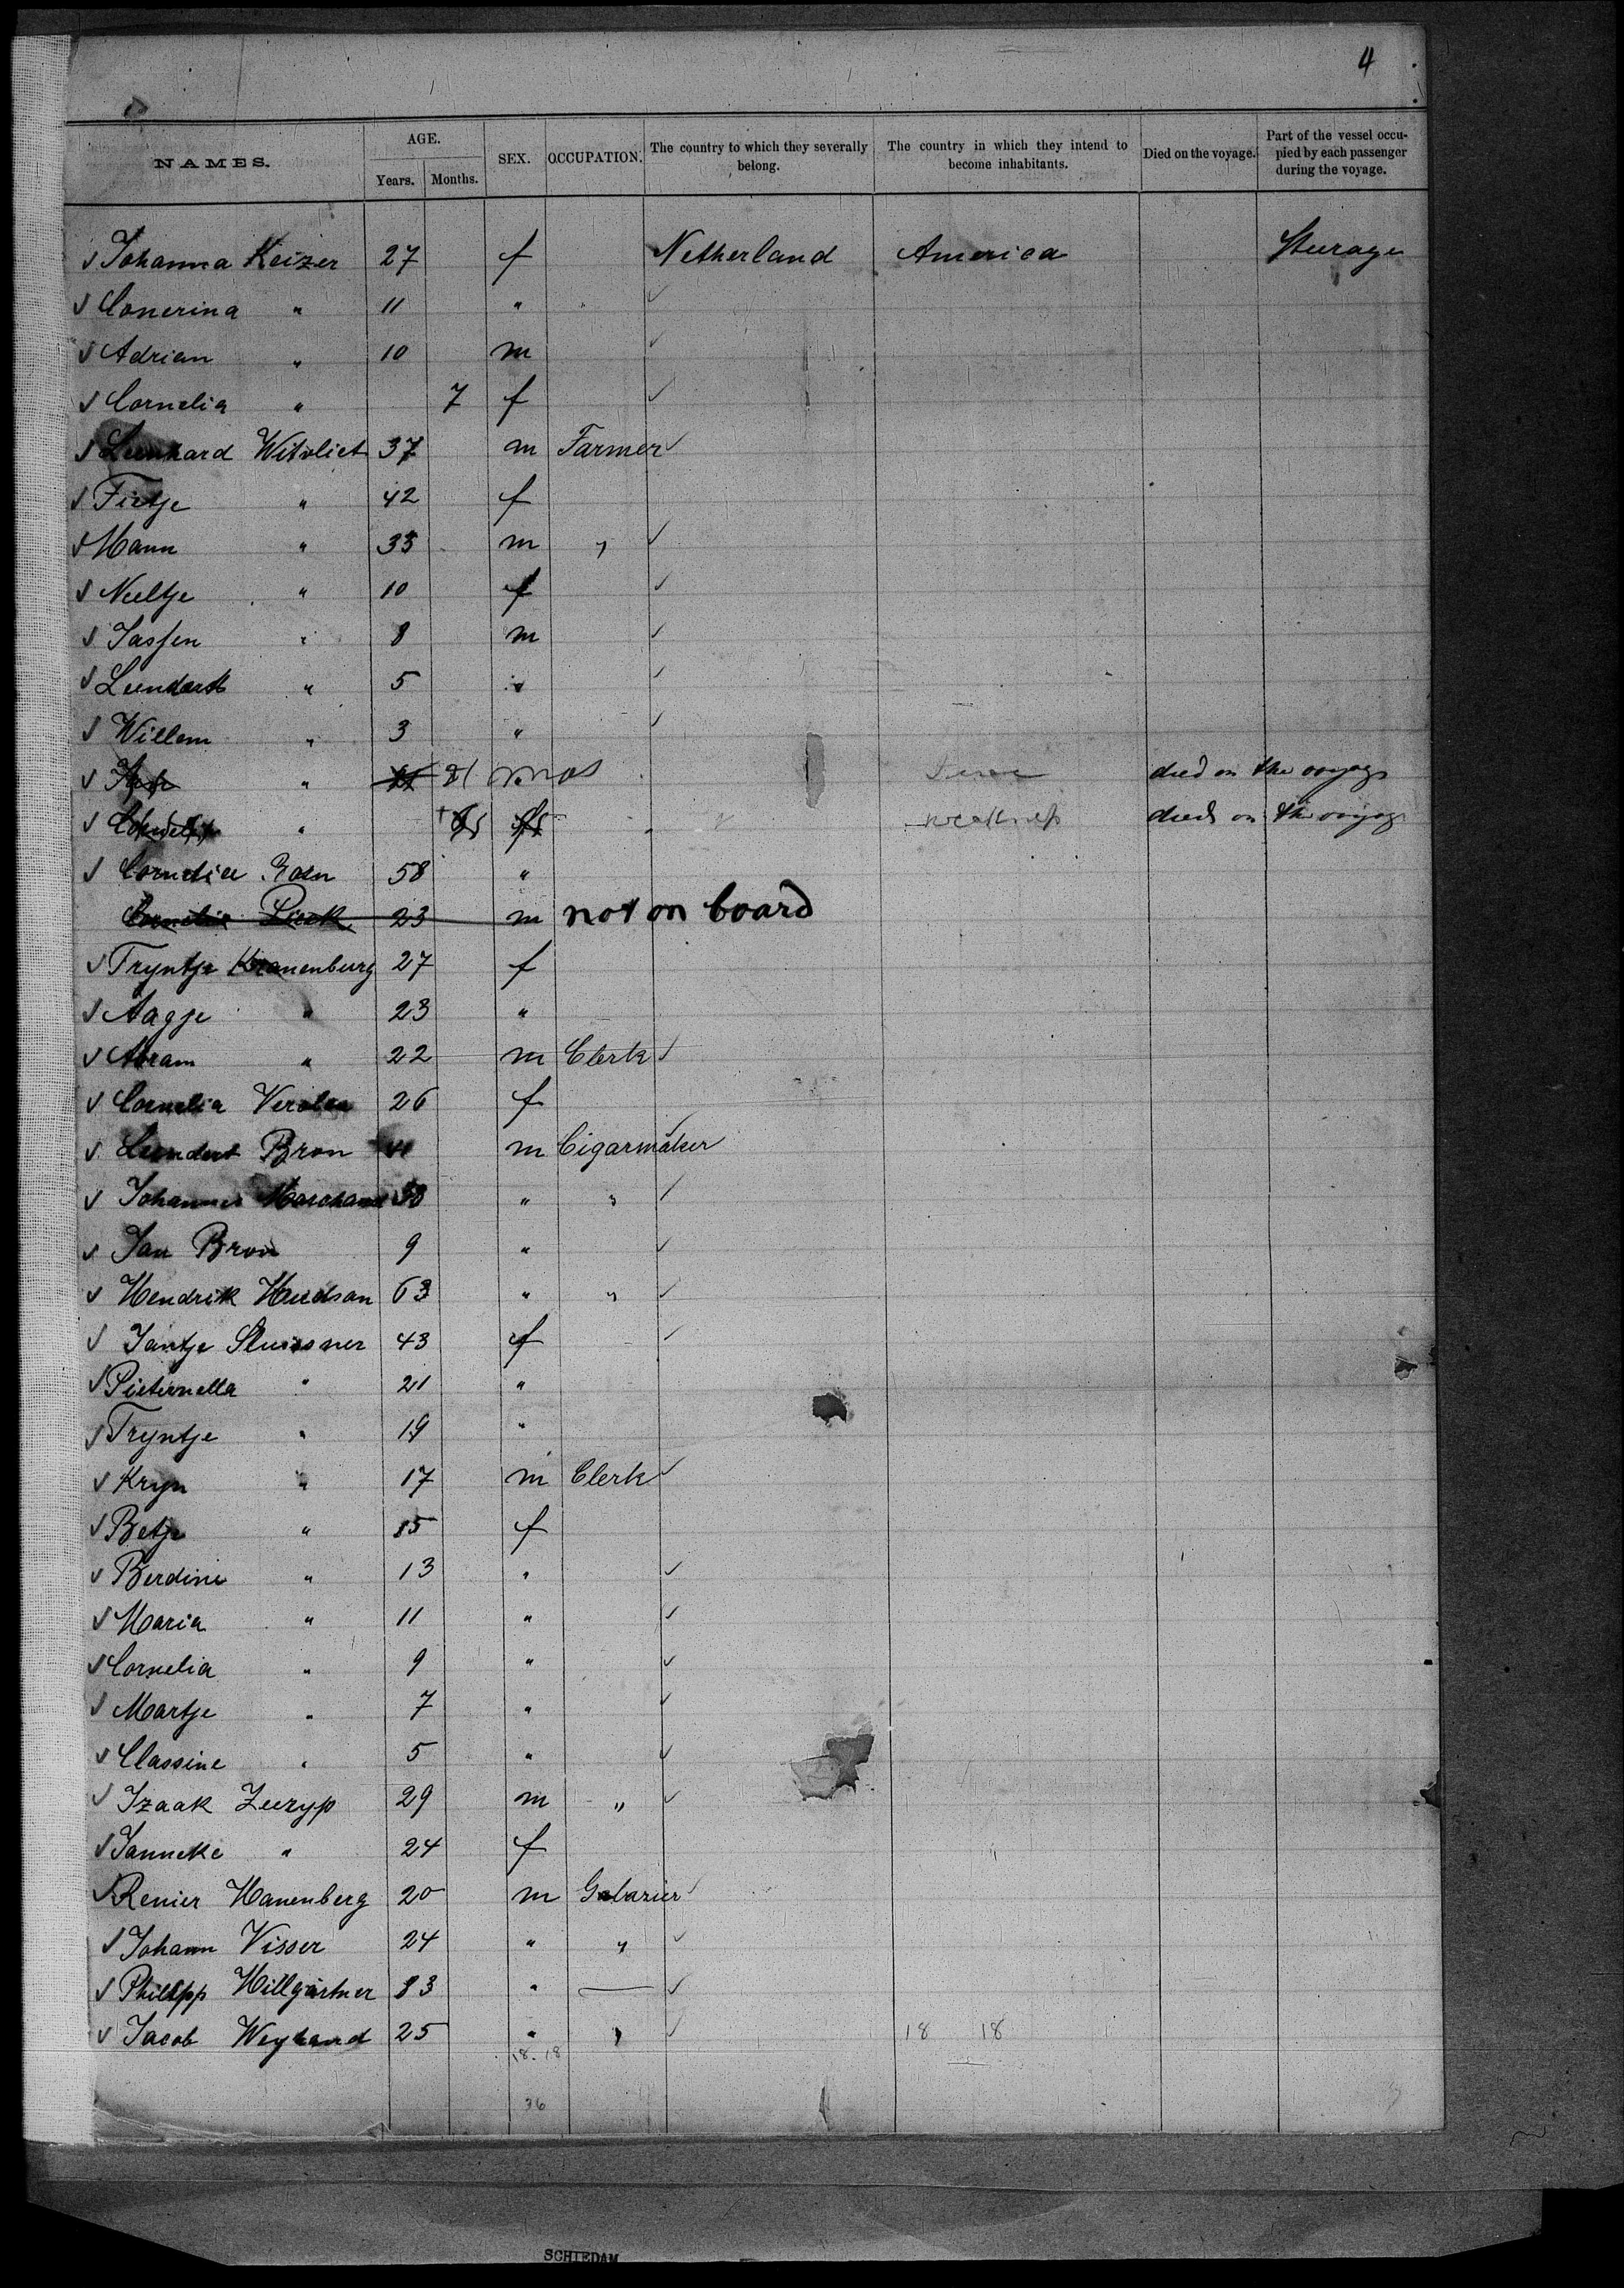 4
NAMES. AGE. Years. Months. SEX. OCCUPATION. The country to which they severally belong. The country in which they intend to become inhabitants. Died on the voyage. Part of the vessel occupied by each passenger during the voyage.
Johanna Keizer 27 f Netherland America Steerage
Conerina " 11 "
Adrian " 10 m
Cornelia " 7 f
Leenhard Witvliet 37 m Farmer
Fietje " 42 f
Mann " 33 m "
Neeltje " 10 f
Jassen " 8 m
Leendert " 5 "
Willem " 3 "
" mos died on the voyage
" weakness died on the voyage
Cornelia 58 "
Cornelia Pieck 23 m not on board
Tryntje Kranenburg 27 f
Aagje " 23 "
Abram " 22 m Clerk
Cornelia 26 f
Leendert Bron 41 m Cigarmaker
Johannes Marchand " "
Jan Bron 9 "
Hendrik Huedsan 63 " "
Jantje Sluissner 43 f
Pieternella " 21 "
Tryntje " 19 "
Kryn " 17 m Clerk
Betje " 15 f
Berdine " 13 "
Maria " 11 "
Cornelia " 9 "
Martje " 7 "
Classine " 5 "
Izaak Zeeryp 29 m "
Janneke " 24 f
Renier Hanenberg 20 m
Johann Visser 24 " "
Philipp Hillgärtner 33 " —
Jacob Weyland 25 " " 18 18
18. 18
36
SCHIEDAM